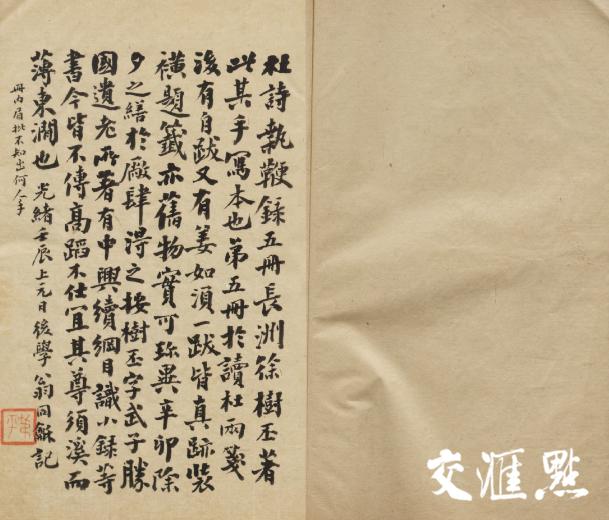 杜詩執鞭錄五冊長洲徐樹丕著
此其手寫本也第五冊於讀杜兩箋
後有自跋又有姜如須一跋皆真跡裝
潢題籤亦舊物實可珍異辛卯除
夕之於廠肆得之按樹丕字武子勝
國遺老所著有中興續綱目識小錄等
書今皆不傳高蹈不仕宜其尊須溪而
薄東澗也 光緒壬辰上元日後學翁同龢記
冊內眉批不知出何人手
叔平
交匯點